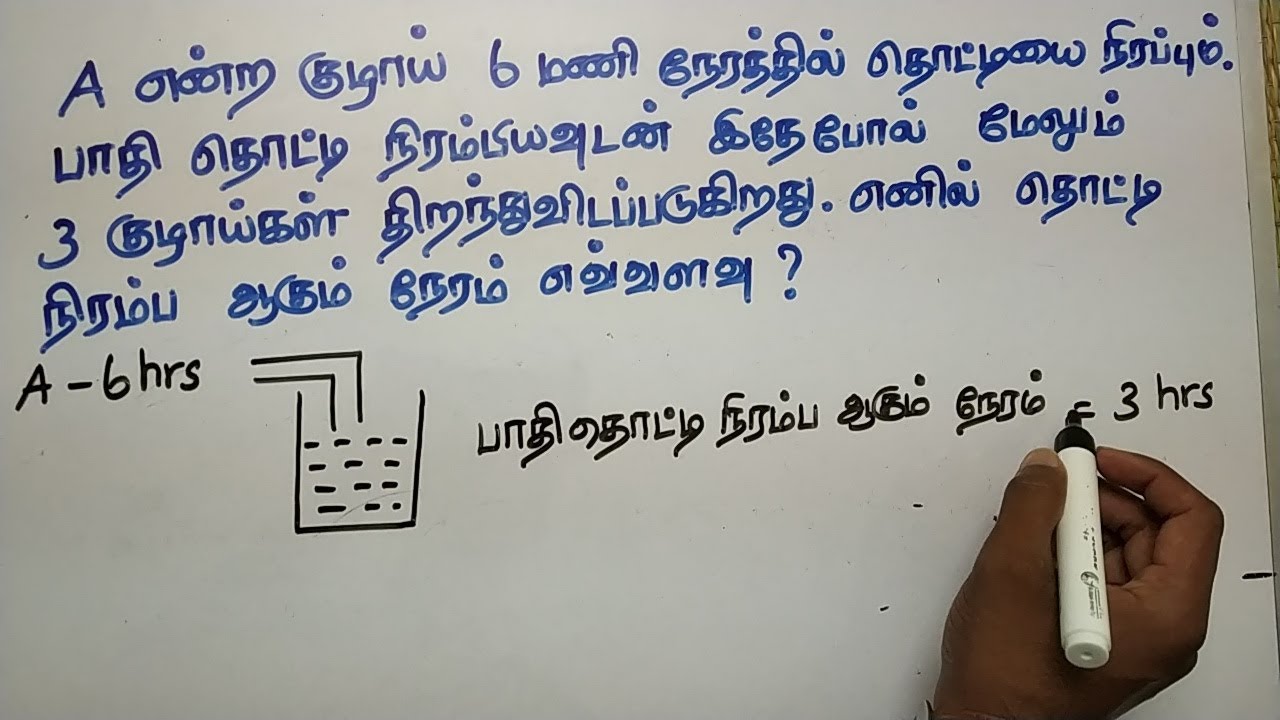 A என்ற குழாய் 6 மணி நேரத்தில் தொட்டியை நிரப்பும்.
பாதி தொட்டி நிரம்பியவுடன் இதேபோல் மேலும்
3 குழாய்கள் திறந்துவிடப்படுகிறது. எனில் தொட்டி
நிரம்ப ஆகும் நேரம் எவ்வளவு ?
A - 6 hrs
பாதி தொட்டி நிரம்ப ஆகும் நேரம் = 3 hrs